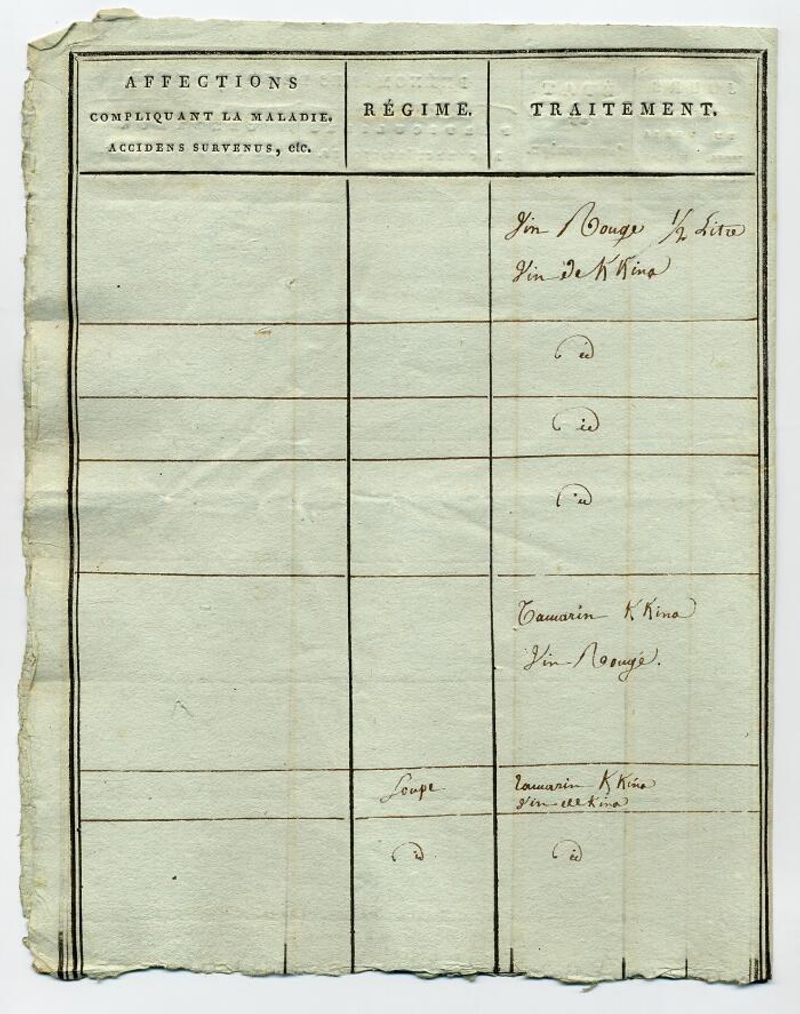 AFFECTIONS
COMPLIQUANT LA MALADIE.
ACCIDENS SURVENUS, etc.
RÉGIME.
TRAITEMENT.
Vin Rouge 1/2 Litre
Vin de KKina
id
id
id
Tamarin KKina
Vin Rouge.
Soupe
Tamarin KKina
Vin de Kina
id
id